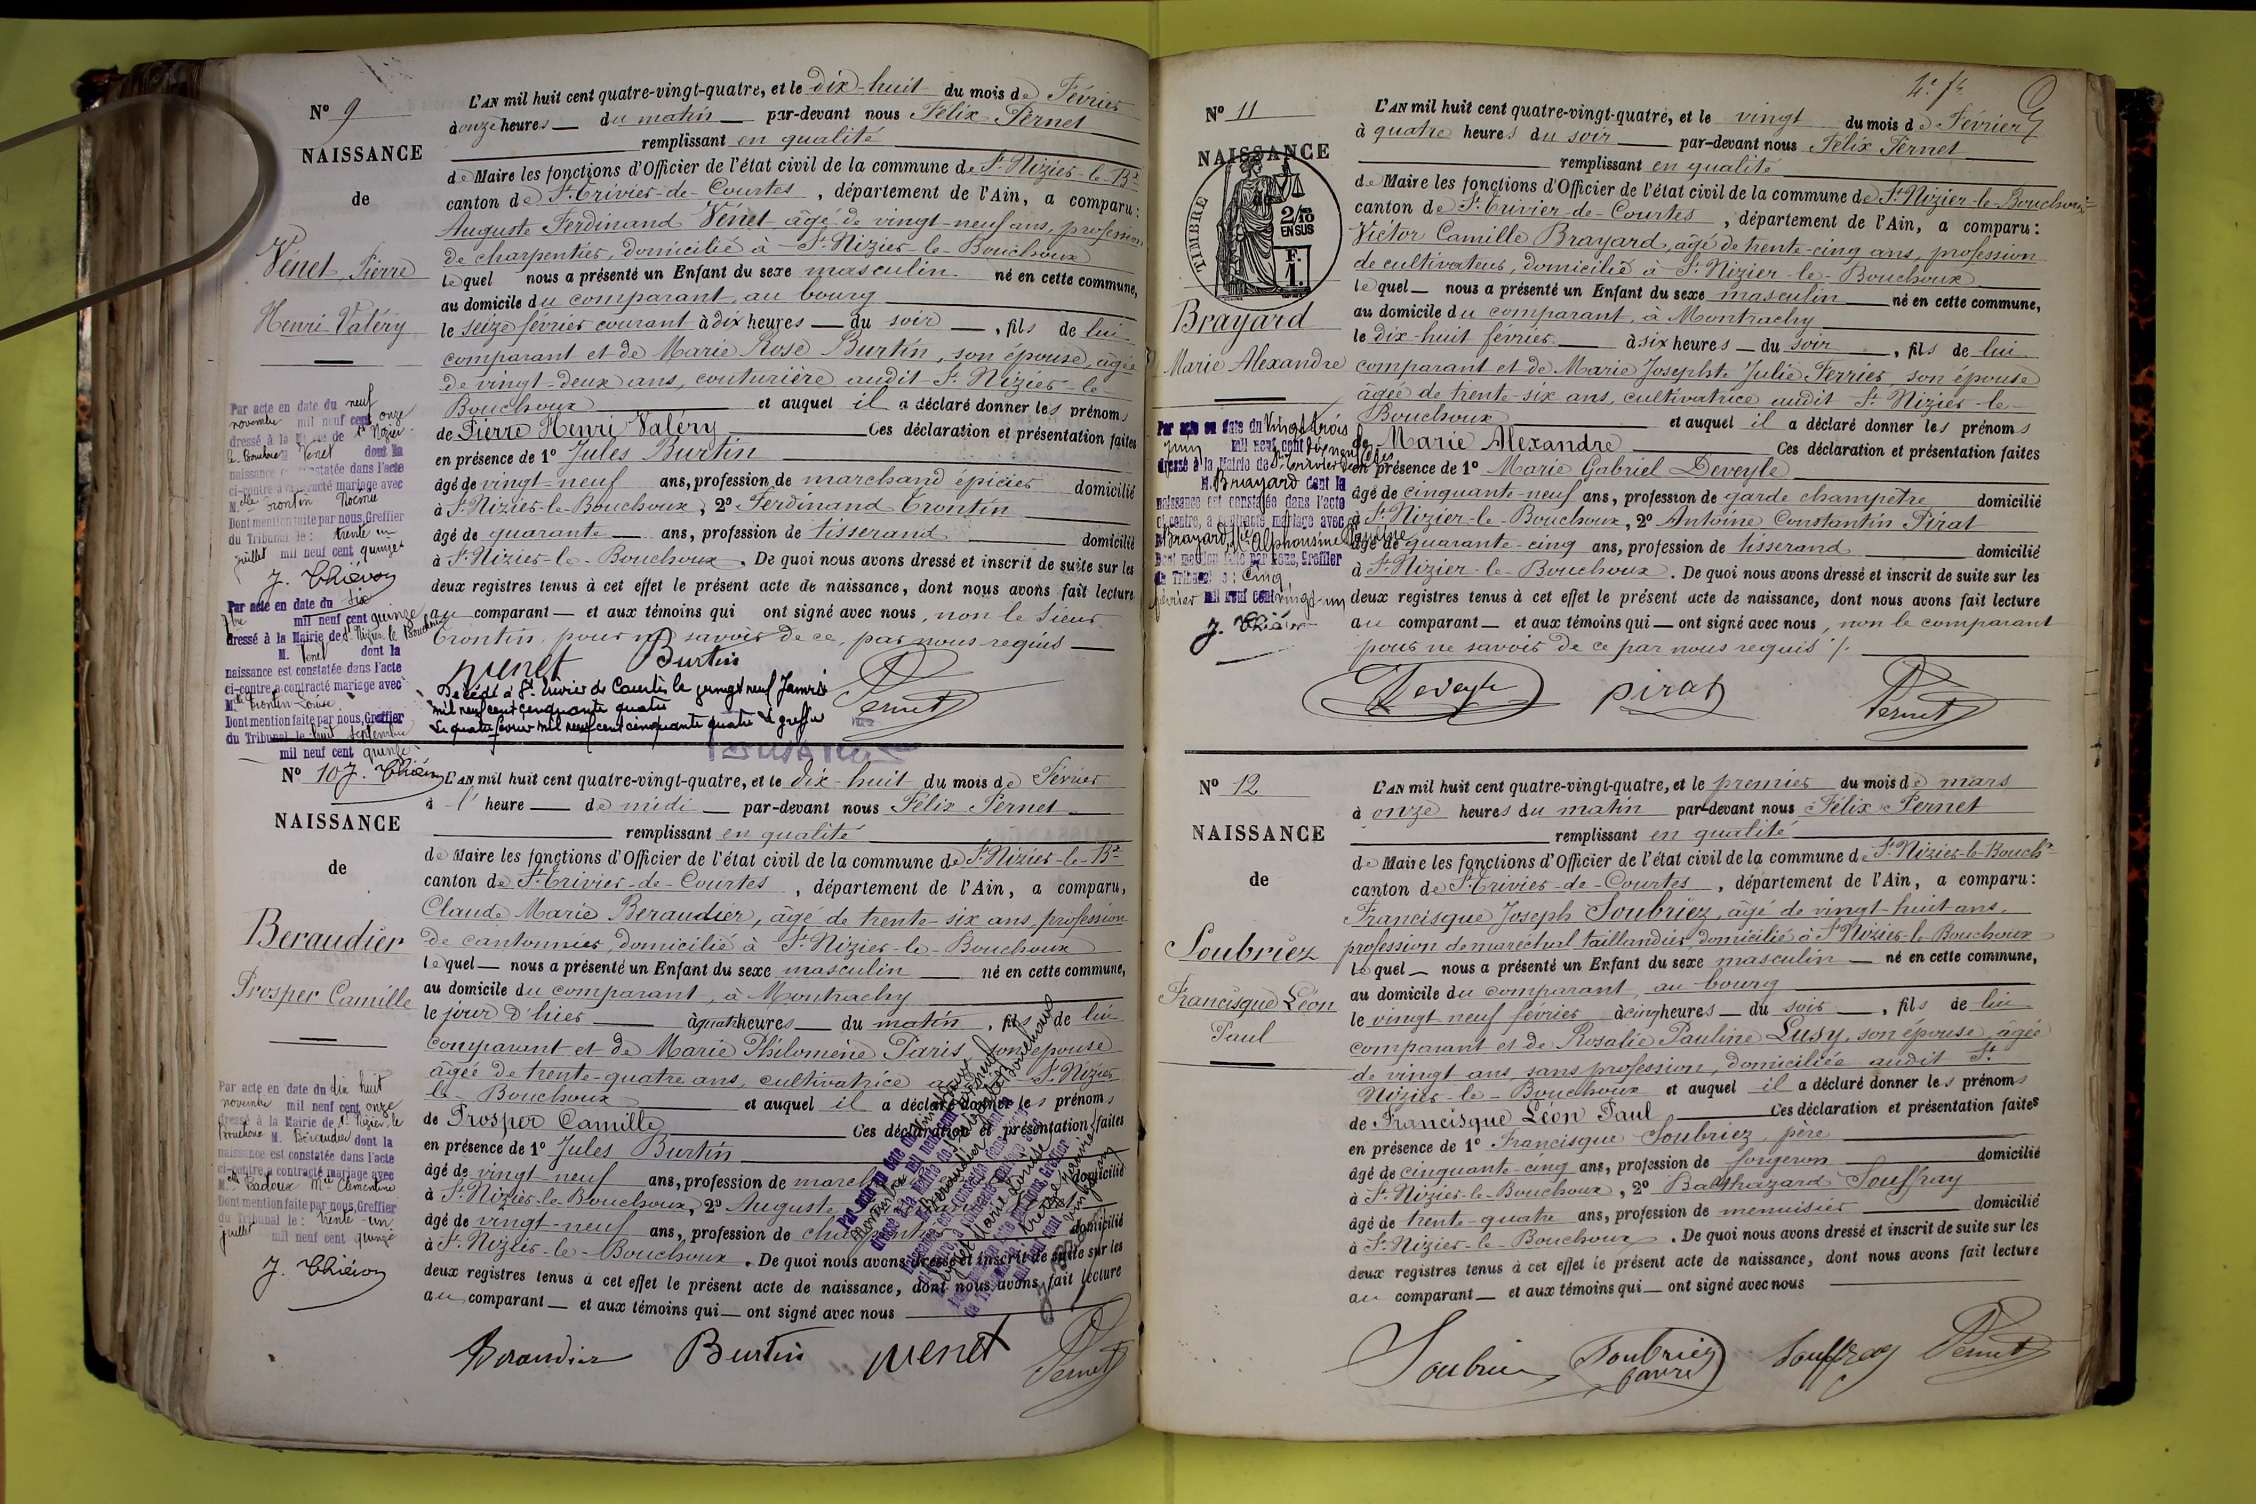 N° 9
NAISSANCE
de
Vénet Pierre
Henri Valéry
L'AN mil huit cent quatre-vingt-quatre, et le dix-huit du mois de Février
à onze heures du matin par-devant nous Félix Pernet
remplissant en qualité
de Maire les fonctions d'Officier de l'état civil de la commune de St Nizier-le-Bx
canton de St Trivier-de-Courtes, département de l'Ain, a comparu:
Auguste Ferdinand Vénet âgé de vingt-neuf ans, profession
de charpentier, domicilié à St Nizier-le-Bouchoux
lequel nous a présenté un Enfant du sexe masculin né en cette commune,
au domicile du comparant, au bourg
le seize février courant à dix heures du soir, fils de lui
comparant et de Marie Rose Burtin, son épouse, âgée
de vingt-deux ans, couturière audit St Nizier-le-
Bouchoux et auquel il a déclaré donner les prénoms
de Pierre Henri Valéry Ces déclaration et présentation faites
en présence de 1° Jules Burtin
âgé de vingt-neuf ans, profession de marchand épicier domicilié
à St Nizier-le-Bouchoux, 2° Ferdinand Trontin
âgé de quarante ans, profession de tisserand domicilié
à St Nizier-le-Bouchoux. De quoi nous avons dressé et inscrit de suite sur les
deux registres tenus à cet effet le présent acte de naissance, dont nous avons fait lecture
au comparant et aux témoins qui ont signé avec nous, non le sieur
Trontin pour ne savoir de ce par nous requis
venet Burtin Pernet
Décédé à St Trivier de Courtes le vingt neuf Janvier
mil neuf cent cinquante quatre
Le quatre février mil neuf cent cinquante quatre Le greffier
Par acte en date du neuf
novembre mil neuf cent onze
dressé à la Mairie de St Nizier
le Bouchoux Venet dont la
naissance est constatée dans l'acte
ci-contre a contracté mariage avec
Melle Trontin Noémie
Dont mention faite par nous, Greffier
du Tribunal le: trente un
juillet mil neuf cent quinze
J. Thiévon
Par acte en date du six
7bre mil neuf cent quinze
dressé à la Mairie de St Nizier le Bouchoux
M. Venet dont la
naissance est constatée dans l'acte
ci-contre a contracté mariage avec
Melle Trontin Louise
Dont mention faite par nous, Greffier
du Tribunal le huit septembre
mil neuf cent quinze
J. Thiévon
N° 10
NAISSANCE
de
Beraudier
Prosper Camille
L'AN mil huit cent quatre-vingt-quatre, et le dix-huit du mois de Février
à l'heure de midi par-devant nous Félix Pernet
remplissant en qualité
de Maire les fonctions d'Officier de l'état civil de la commune de St Nizier-le-Bx
canton de St Trivier-de-Courtes, département de l'Ain, a comparu,
Claude Marie Beraudier, âgé de trente-six ans, profession
de cantonnier, domicilié à St Nizier-le-Bouchoux
lequel nous a présenté un Enfant du sexe masculin né en cette commune,
au domicile du comparant, à Montrachy
le jour d'hier à quatre heures du matin, fils de lui
comparant et de Marie Philomène Paris son épouse
âgée de trente-quatre ans, cultivatrice St Nizier
le Bouchoux et auquel il a déclaré donner les prénoms
de Prosper Camille Ces déclaration et présentation faites
en présence de 1° Jules Burtin
âgé de vingt-neuf ans, profession de domicilié
à St Nizier-le-Bouchoux, 2° Auguste
âgé de vingt-neuf ans, profession de domicilié
à St Nizier-le-Bouchoux. De quoi nous avons dressé et inscrit de suite sur les
deux registres tenus à cet effet le présent acte de naissance, dont nous avons fait lecture
au comparant et aux témoins qui ont signé avec nous
Beraudier Burtin venet Pernet
Par acte en date du dix huit
novembre mil neuf cent onze
dressé à la Mairie de St Nizier le
Bouchoux M. Béraudier dont la
naissance est constatée dans l'acte
ci-contre a contracté mariage avec
Melle Badoux Mie Clémentine
Dont mention faite par nous, Greffier
du Tribunal le: trente-un
juillet mil neuf cent quinze
J. Thiévon
4e ft
N° 11
NAISSANCE
TIMBRE
2/10
EN SUS
F.
1.
Brayard
Marie Alexandre
L'AN mil huit cent quatre-vingt-quatre, et le vingt du mois de Février
à quatre heures du soir par-devant nous Félix Pernet
remplissant en qualité
de Maire les fonctions d'Officier de l'état civil de la commune de St Nizier-le-Bouchoux
canton de St Trivier-de-Courtes, département de l'Ain, a comparu:
Victor Camille Brayard, âgé de trente-cinq ans, profession
de cultivateur, domicilié à St Nizier-le-Bouchoux
lequel nous a présenté un Enfant du sexe masculin né en cette commune,
au domicile du comparant, à Montrachy
le dix-huit février à six heures du soir, fils de lui
comparant et de Marie Josephte Julie Ferrier, son épouse
âgée de trente-six ans, cultivatrice audit St Nizier-le-
Bouchoux et auquel il a déclaré donner les prénoms
de Marie Alexandre Ces déclaration et présentation faites
en présence de 1° Marie Gabriel Deveyle
âgé de cinquante-neuf ans, profession de garde champêtre domicilié
à St Nizier-le-Bouchoux, 2° Antoine Constantin Pirat
âgé de quarante-cinq ans, profession de tisserand domicilié
à St Nizier-le-Bouchoux. De quoi nous avons dressé et inscrit de suite sur les
deux registres tenus à cet effet le présent acte de naissance, dont nous avons fait lecture
au comparant et aux témoins qui ont signé avec nous, non le comparant
pour ne savoir de ce par nous requis ./.
Deveyle pirat Pernet
Par acte en date du Vingt trois
Juin mil neuf cent dix neuf
dressé à la Mairie de St Trivier
M. Brayard dont la
naissance est constatée dans l'acte
ci-contre, a contracté mariage avec
Brayard Mie Alphonsine
Dont mention faite par nous, Greffier
du Tribunal le: Cinq
février mil neuf cent vingt-un
J. Thiévon
N° 12
NAISSANCE
de
Soubriez
Francisque Léon
Paul
L'AN mil huit cent quatre-vingt-quatre, et le premier du mois de mars
à onze heures du matin par-devant nous Félix Pernet
remplissant en qualité
de Maire les fonctions d'Officier de l'état civil de la commune de St Nizier-le-Bouchx
canton de St Trivier-de-Courtes, département de l'Ain, a comparu:
Francisque Joseph Soubriez, âgé de vingt-huit ans
profession de maréchal taillandier, domicilié à St Nizier-le-Bouchoux
lequel nous a présenté un Enfant du sexe masculin né en cette commune,
au domicile du comparant, au bourg
le vingt neuf février à cinq heures du soir, fils de lui
comparant et de Rosalie Pauline Lusy, son épouse, âgée
de vingt ans, sans profession, domiciliée audit St
Nizier-le-Bouchoux et auquel il a déclaré donner les prénoms
de Francisque Léon Paul Ces déclaration et présentation faites
en présence de 1° Francisque Soubriez, père
âgé de cinquante-cinq ans, profession de forgeron domicilié
à St Nizier-le-Bouchoux, 2° Balthazard Souffray
âgé de trente-quatre ans, profession de menuisier domicilié
à St Nizier-le-Bouchoux. De quoi nous avons dressé et inscrit de suite sur les
deux registres tenus à cet effet le présent acte de naissance, dont nous avons fait lecture
au comparant et aux témoins qui ont signé avec nous
Soubriez Soubriez Souffray Pernet